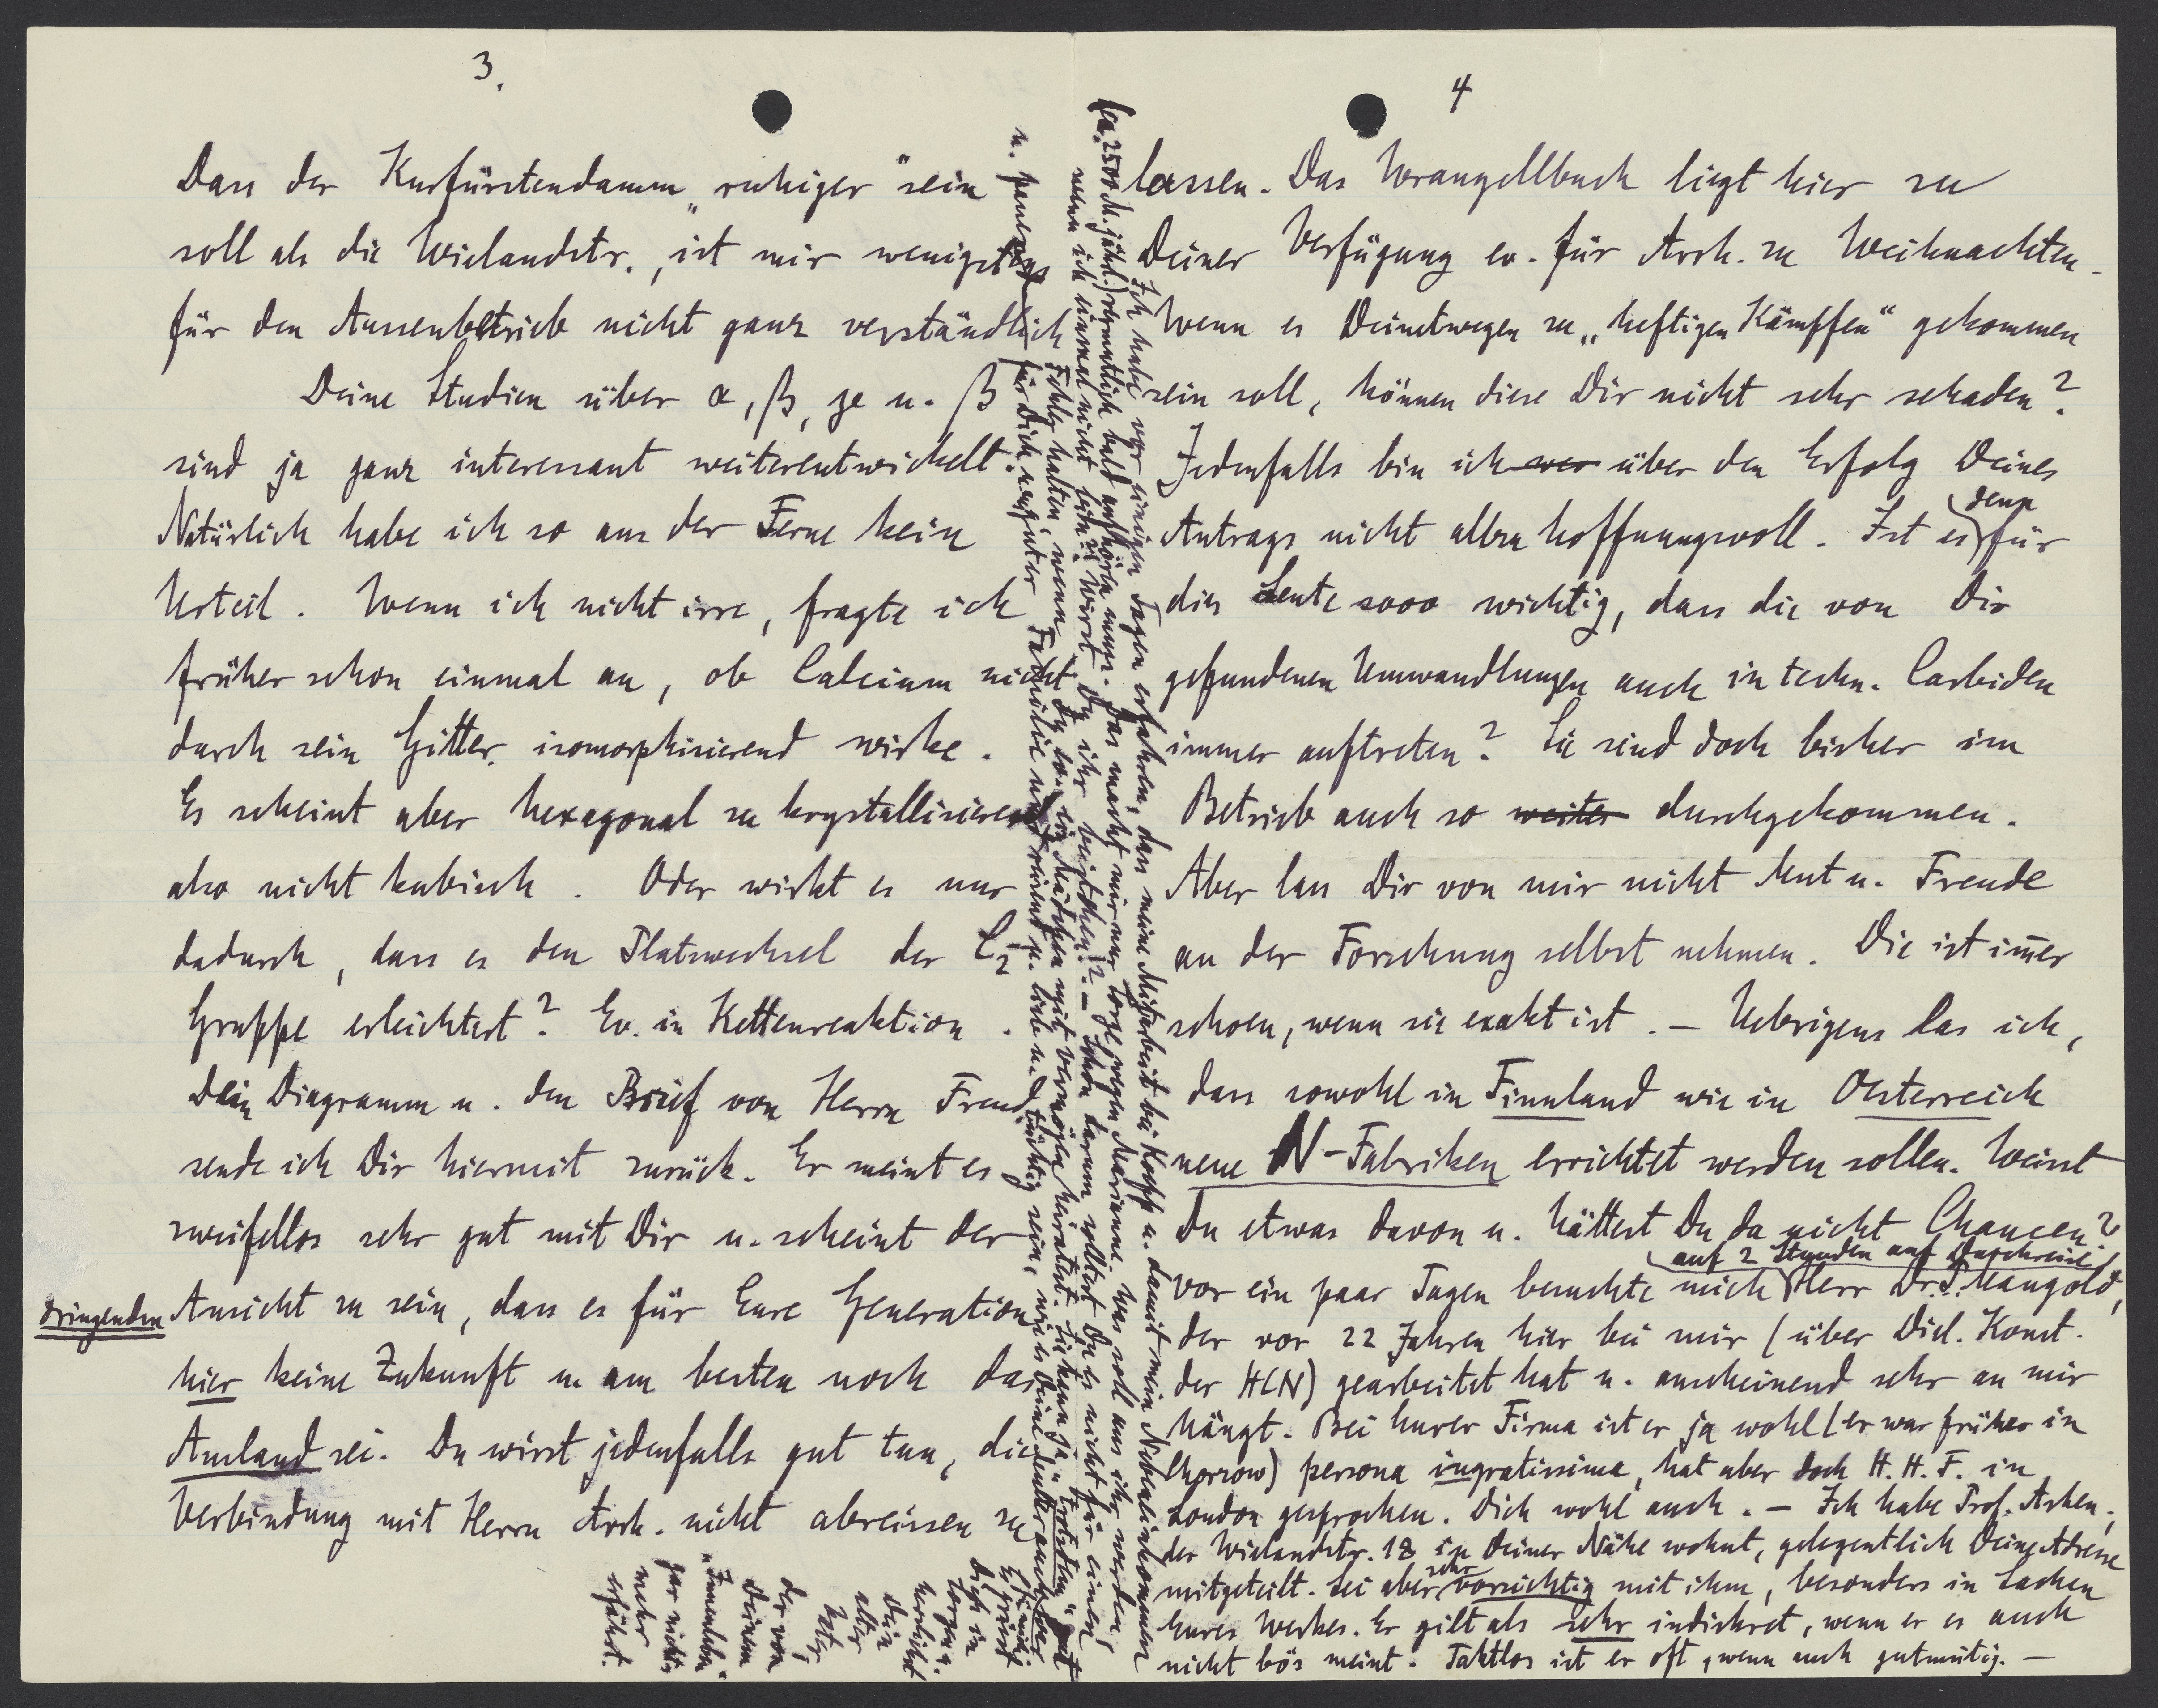 3.
Dass der Kurfürstendamm „ruhiger" sein
soll als die Wielandstr., ist mir wenigstens
für den Aussenbetrieb nicht ganz verständlich
Deine Studien über α, β, γ u. β
sind ja ganz interessant weiterentwickelt.
Natürlich habe ich so aus der Ferne kein
Urteil. Wenn ich nicht irre, fragte ich
früher schon einmal an, ob Calcium nicht
durch sein Gitter isomorphisierend wirke.
Es scheint aber hexagonal zu krystallisieren
also nicht kubisch. Oder wirkt es nur
dadurch, dass es den Platzwechsel der C2
Gruppe erleichtert? Ev. in Kettenreaktion.
Dein Diagramm u. den Brief von Herrn Freud
sende ich Dir hiermit zurück. Er meint es
zweifellos sehr gut mit Dir u. scheint der
dringenden Ansicht zu sein, dass es für Eure Generation
hier keine Zukunft u. am besten noch das
Ausland sei. Du wirst jedenfalls gut tun, die
Verbindung mit Herrn Arch. nicht abreissen zu
4
lassen. Das Wrangellbuch liegt hier zu
Deiner Verfügung ev. für Arch. zu Weihnachten.
Wenn es Deinetwegen zu „heftigen Kämpfen" gekommen
sein soll, können diese Dir nicht sehr schaden?
Jedenfalls bin ich über den Erfolg Deines
Antrags nicht allzu hoffnungsvoll. Ist es denn für
die Leute sooo wichtig, dass die von Dir
gefundenen Umwandlungen auch in techn. Carbiden
immer auftreten? Sie sind doch bisher im
Betrieb auch so weiter durchgekommen.
Aber lass Dir von mir nicht Mut u. Freude
an der Forschung selbst nehmen. Die ist im̄er
schoen, wenn sie exakt ist. – Uebrigens las ich,
dass sowohl in Finnland wie in Oesterreich
neue N-Fabriken errichtet werden sollen. Weisst
Du etwas davon u. hättest Du da nicht Chancen?
Vor ein paar Tagen besuchte mich auf 2 Stunden auf Durchreise Herr Dr. S. Mangold,
der vor 22 Jahren hier bei mir (über Diel. Konst.
der HCN) gearbeitet hat u. anscheinend sehr an mir
hängt. Bei Eurer Firma ist er ja wohl (er war früher in
Chorzow) persona ingratissima, hat aber doch H. H. F. in
London gesprochen. Dich wohl auch. – Ich habe Prof. Askan.,
der Wielandstr. 18 in Deiner Nähe wohnt, gelegentlich Deine Adresse
mitgeteilt. Sei aber sehr vorsichtig mit ihm, besonders in Sachen
Eures Werkes. Er gilt als sehr indiskret, wenn er es auch
nicht bös meint. Taktlos ist er oft, wenn auch gutmütig. –
Ich habe vor einigen Tagen erfahren, dass meine Mitarbeit bei Kopp u. damit mein Nebeneinkommen
(ca. 2500 M. jährl.) vermutlich bald aufhören muss. Das macht mir nur Sorge wegen Marianne. Was soll aus ihr werden,
wenn ich einmal nicht bin? Wirst Du ihr beistehen? – Schon darum solltest Du es nicht für einen
Fehler halten, wenn Du ev. ein Mädchen mit Vermögen heiratest. Sie kann ja „trotzdem" gut
u. passend für Dich, aus guter Familie u. lieb u. tüchtig sein, wie es Deine Mutter auch war
Es grüsst
Dich in
Sorge u.
herzlichst
Dein
alter
Vater,
der von
Deinem
„Innenleben"
gar nichts
mehr
erfährt.